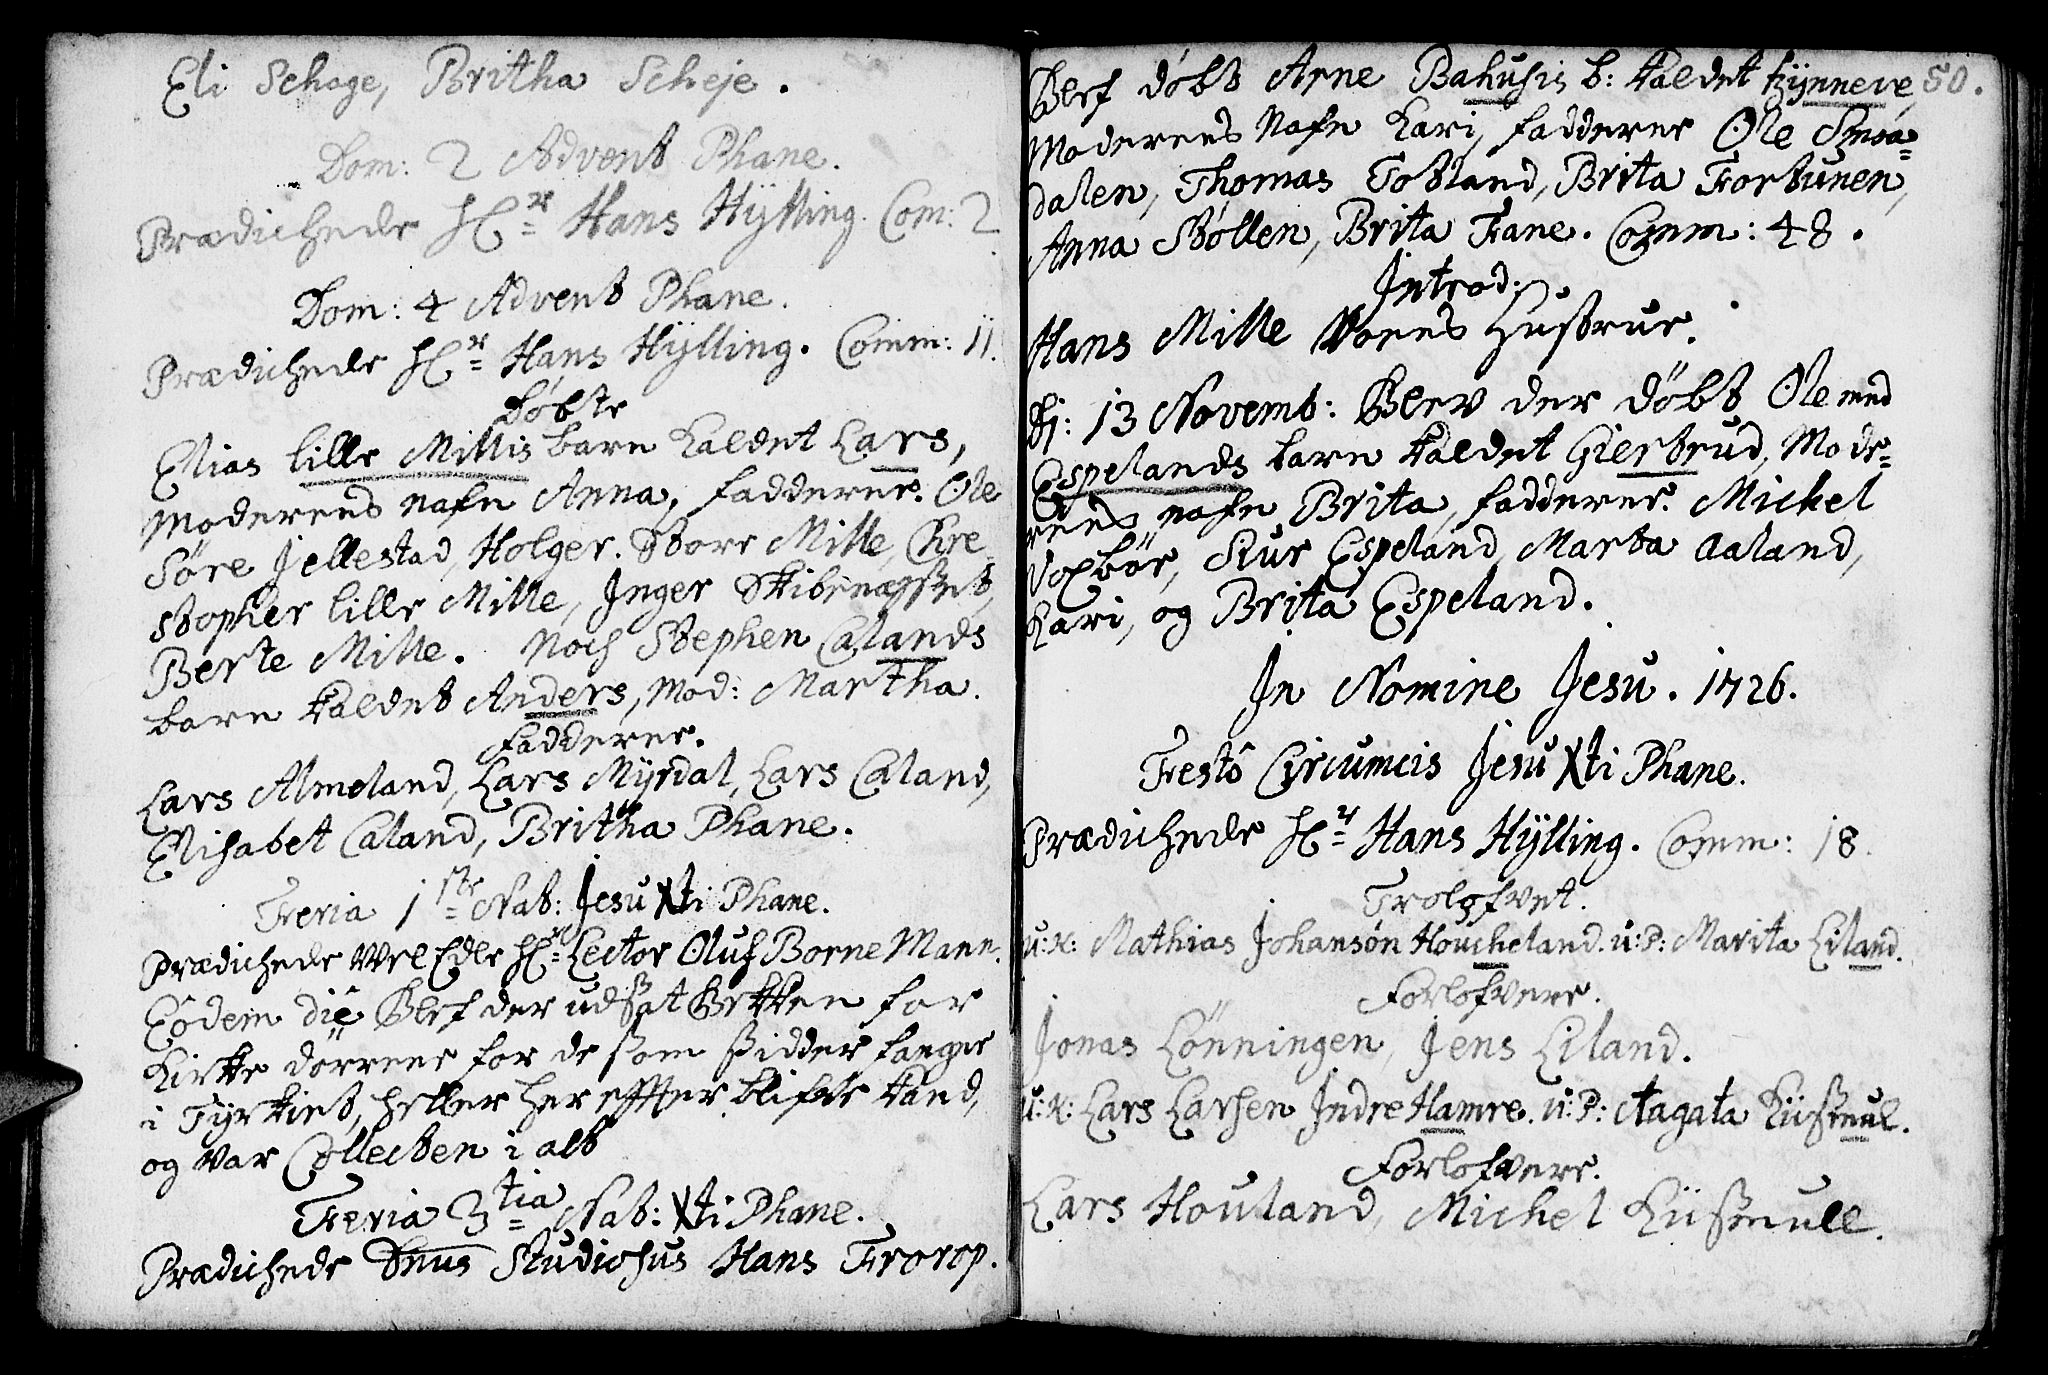 Eli Schage, Britha Scheje.
Dom: 2 Advent Phane.
Prædichede Hr Hans Hÿlling. Com: 2
Dom: 4 Advent Phane.
Prædichede Hr Hans Hÿlling. Comm: 11.
Döbte
Elias lille Millis barn kaldet Lars,
Moderens nafn Anna, fadderne. Ole
Söre Jellestad, Holger Store Mille, Chre-
stopher lille Mille, Inger Skibenæsset,
Berte Mille. Noch Stephen Calands
barn kaldet Anders, Mod: Martha.
Fadderne.
Lars Almeland, Lars Mÿrdal, Lars Caland,
Elisabet Caland, Britha Phane.
Feria 1ste Nat: Jesu Xti Phane.
Prædichede Vel Edle Hr Lector Oluf BorneMann.
Eodem die Blef der udsat Bekken for
Kirke dörrene for de som sidder fange
i Tÿrkiet, heller her effter blifve kand,
og var Collecten i alt
Feria 3tia Nat: Xti Phane.
Prædichede Dnus Studiosus Hans Frorop.
Blef döbt Arne Bahusis b: kaldet Kÿnneve, 50.
Moderens Nafn Kari, fadderne Ole Smöa=
dalen, Thomas Totland, Brita Fortunen,
Anna Stöllen, Brita Fane. Comm: 48.
Introd:
Hans Mille Noens Hustrue.
Dj: 13 Novemb: Blev der döbt Ole med
Espelands barn kaldet Giertrud, Mode=
rens nafn Brita, fadderne. Michel
Voxbör, Siur Espeland, Marta Aaland,
Kari, og Brita Espeland.
In Nomine Jesu. 1726.
Festo Circumcis Jesu Xti Phane.
Prædichede Hr Hans Hÿlling. Comm: 18.
Trolofvet.
u:K: Mathias Johansön Houcheland. u:P: Marita Liland.
Forlofvere.
Jonas Lönningen, Jens Liland.
u:K: Lars Larsen Indre Hamre. u:P: Aagata Küßmul.
Forlofvere.
Lars Houland, Michel Küßmull.